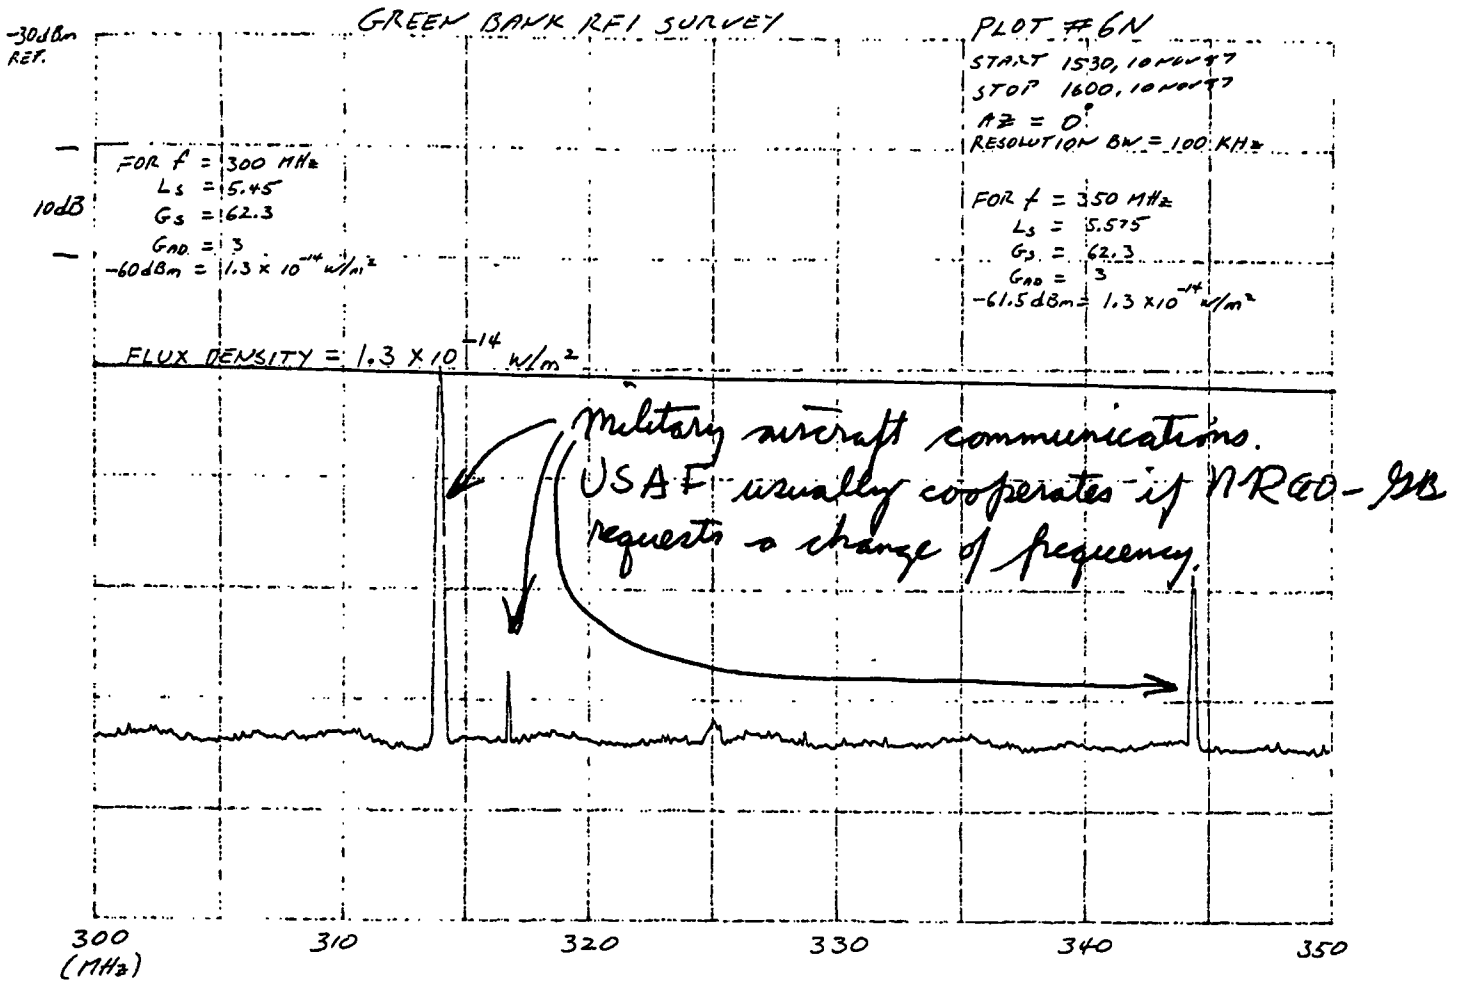 GREEN BANK RFI SURVEY
PLOT #6N
-30dBm
REF.
START 1530, 10 NOV 87
STOP 1600, 10 NOV 87
AZ = 0°
RESOLUTION BW = 100 KHz
10dB
FOR f = 300 MHz
Ls = 5.45
Gs = 62.3
GAD = 3
-60dBm = 1.3 × 10^-14 w/m²
FOR f = 350 MHz
Ls = 5.575
Gs = 62.3
GAD = 3
-61.5dBm = 1.3 ×10^-14 w/m²
FLUX DENSITY = 1.3 × 10^-14 w/m²
Military aircraft communications.
USAF usually cooperates if NRAO-GB
requests a change of frequency.
300 310 320 330 340 350
(MHz)